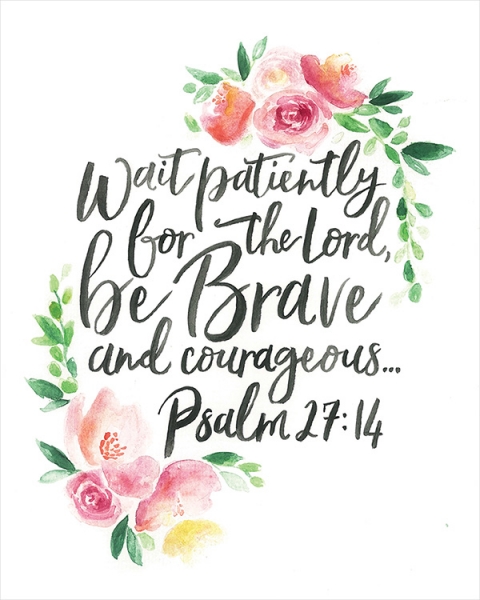 Wait patiently
for the Lord,
be Brave
and courageous...
Psalm 27:14